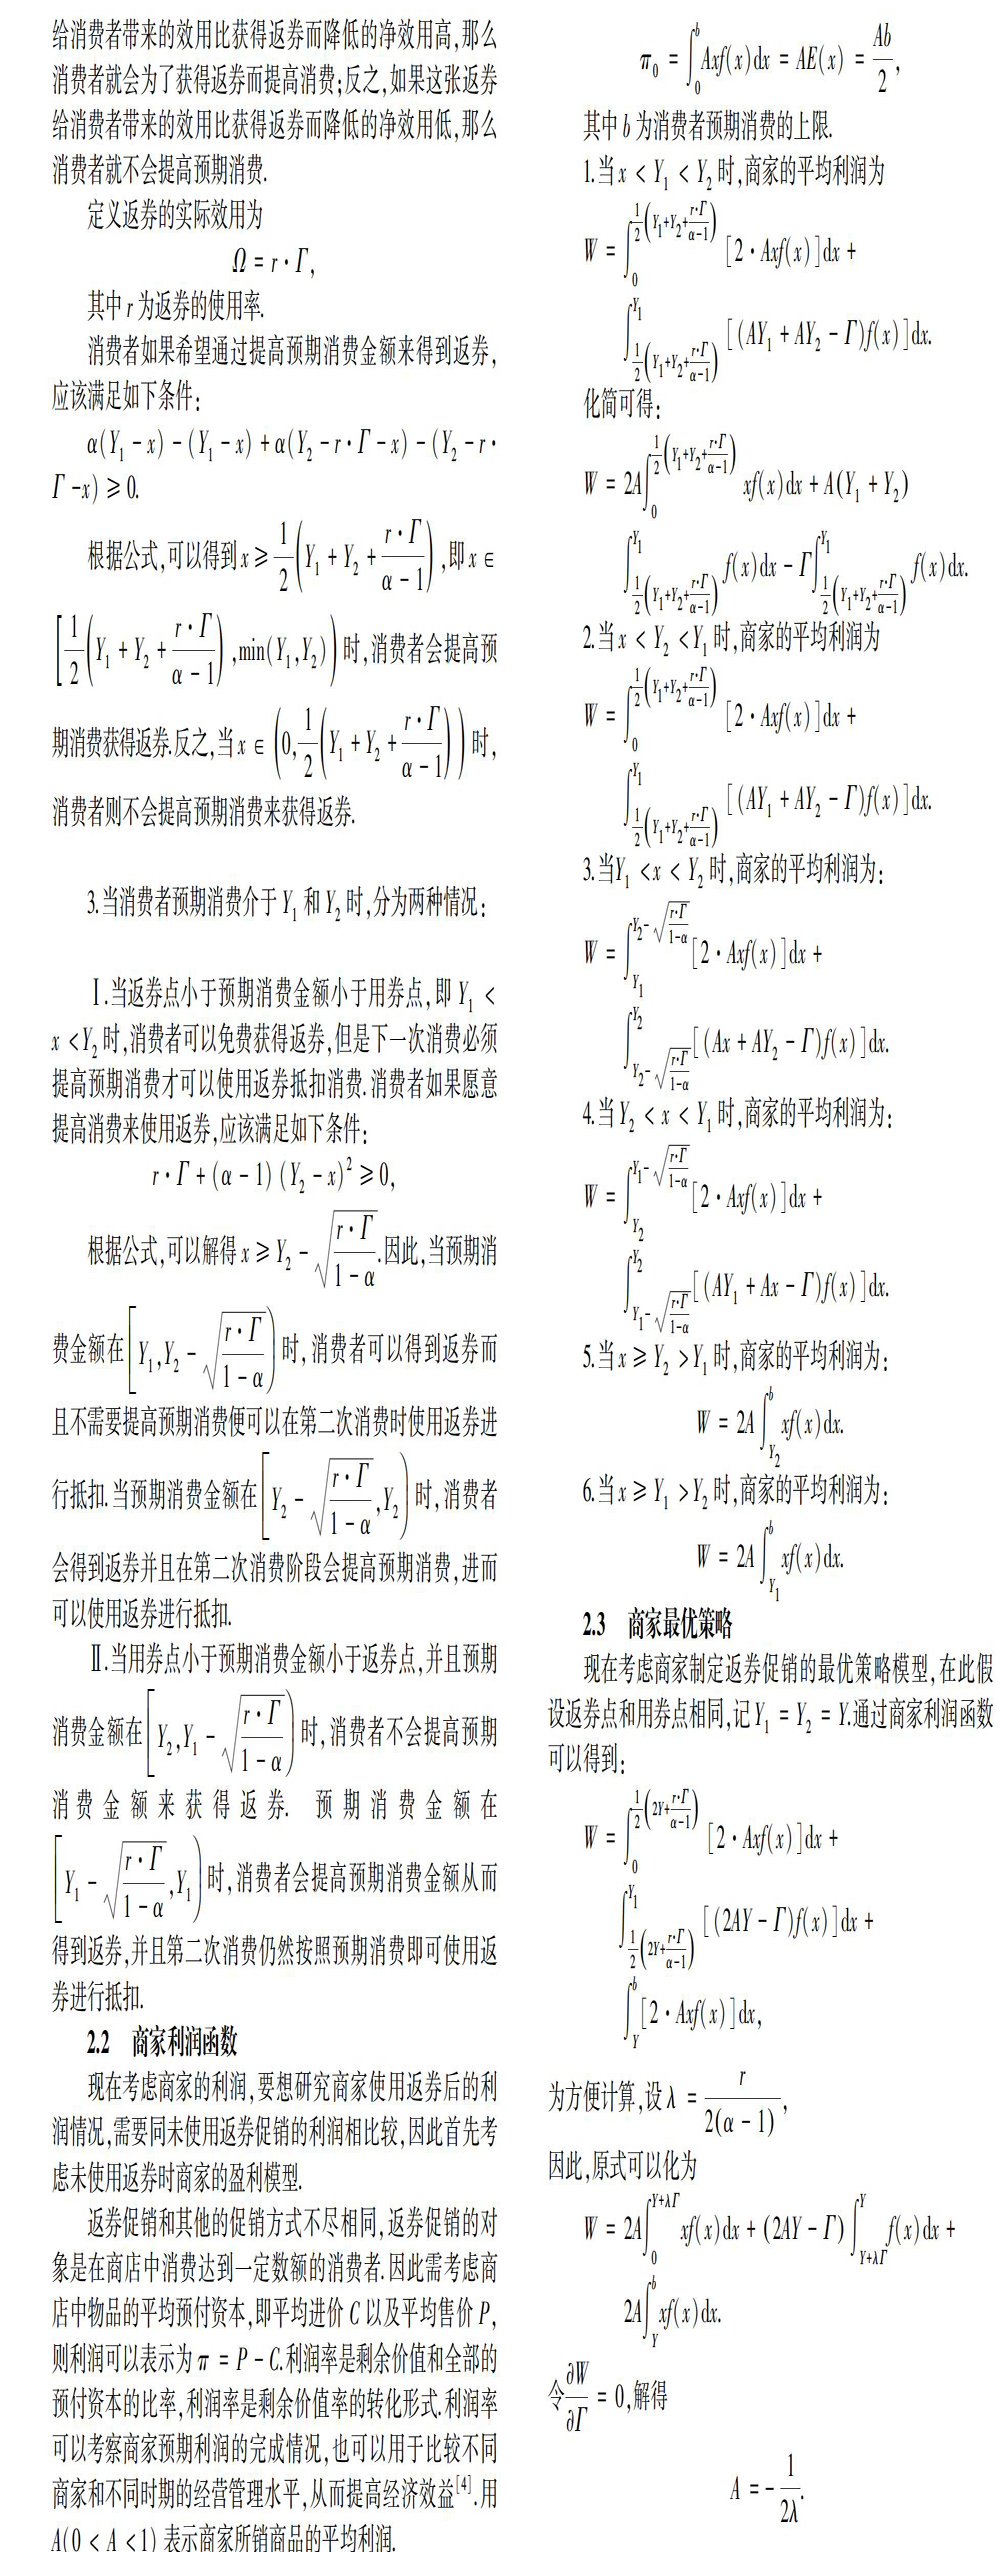 给消费者带来的效用比获得返券而降低的净效用高,那么
消费者就会为了获得返券而提高消费;反之,如果这张返券
给消费者带来的效用比获得返券而降低的净效用低,那么
消费者就不会提高预期消费.
定义返券的实际效用为
Ω = r·Γ,
其中 r 为返券的使用率.
消费者如果希望通过提高预期消费金额来得到返券,
应该满足如下条件:
α(Y₁ − x) − (Y₁ − x) + α(Y₂ − r·Γ − x) − (Y₂ − r·
Γ − x) ≥ 0.
根据公式,可以得到 x ≥ 1/2(Y₁ + Y₂ + r·Γ/(α − 1)),即 x ∈
[1/2(Y₁ + Y₂ + r·Γ/(α − 1)),min(Y₁,Y₂)) 时,消费者会提高预
期消费获得返券.反之,当 x ∈ (0,1/2(Y₁ + Y₂ + r·Γ/(α − 1))) 时,
消费者则不会提高预期消费来获得返券.
3.当消费者预期消费介于 Y₁ 和 Y₂ 时,分为两种情况:
Ⅰ.当返券点小于预期消费金额小于用券点,即 Y₁ <
x < Y₂ 时,消费者可以免费获得返券,但是下一次消费必须
提高预期消费才可以使用返券抵扣消费.消费者如果愿意
提高消费来使用返券,应该满足如下条件:
r·Γ + (α − 1) (Y₂ − x)² ≥ 0,
根据公式,可以解得 x ≥ Y₂ − √(r·Γ/(1 − α)).因此,当预期消
费金额在[Y₁,Y₂ − √(r·Γ/(1 − α))) 时,消费者可以得到返券而
且不需要提高预期消费便可以在第二次消费时使用返券进
行抵扣.当预期消费金额在[Y₂ − √(r·Γ/(1 − α)),Y₂) 时,消费者
会得到返券并且在第二次消费阶段会提高预期消费,进而
可以使用返券进行抵扣.
Ⅱ.当用券点小于预期消费金额小于返券点,并且预期
消费金额在[Y₂,Y₁ − √(r·Γ/(1 − α))) 时,消费者不会提高预期
消费金额来获得返券. 预期消费金额在
[Y₁ − √(r·Γ/(1 − α)),Y₁) 时,消费者会提高预期消费金额从而
得到返券,并且第二次消费仍然按照预期消费即可使用返
券进行抵扣.
2.2 商家利润函数
现在考虑商家的利润,要想研究商家使用返券后的利
润情况,需要同未使用返券促销的利润相比较,因此首先考
虑未使用返券时商家的盈利模型.
返券促销和其他的促销方式不尽相同,返券促销的对
象是在商店中消费达到一定数额的消费者.因此需考虑商
店中物品的平均预付资本,即平均进价 C 以及平均售价 P,
则利润可以表示为 π = P − C.利润率是剩余价值和全部的
预付资本的比率,利润率是剩余价值率的转化形式.利润率
可以考察商家预期利润的完成情况,也可以用于比较不同
商家和不同时期的经营管理水平,从而提高经济效益[4].用
A(0 < A < 1) 表示商家所销商品的平均利润.
π₀ = ∫₀ᵇ Axf(x)dx = AE(x) = Ab/2,
其中 b 为消费者预期消费的上限.
1.当 x < Y₁ < Y₂ 时,商家的平均利润为
W = ∫_0^{1/2(Y₁+Y₂+r·Γ/(α−1))} [2·Axf(x)]dx +
∫_{1/2(Y₁+Y₂+r·Γ/(α−1))}^{Y₁} [(AY₁ + AY₂ − Γ)f(x)]dx.
化简可得:
W = 2A∫_0^{1/2(Y₁+Y₂+r·Γ/(α−1))} xf(x)dx + A(Y₁ + Y₂)
∫_{1/2(Y₁+Y₂+r·Γ/(α−1))}^{Y₁} f(x)dx − Γ∫_{1/2(Y₁+Y₂+r·Γ/(α−1))}^{Y₁} f(x)dx.
2.当 x < Y₂ < Y₁ 时,商家的平均利润为
W = ∫_0^{1/2(Y₁+Y₂+r·Γ/(α−1))} [2·Axf(x)]dx +
∫_{1/2(Y₁+Y₂+r·Γ/(α−1))}^{Y₁} [(AY₁ + AY₂ − Γ)f(x)]dx.
3.当Y₁ < x < Y₂ 时,商家的平均利润为:
W = ∫_{Y₁}^{Y₂−√(r·Γ/(1−α))} [2·Axf(x)]dx +
∫_{Y₂−√(r·Γ/(1−α))}^{Y₂} [(Ax + AY₂ − Γ)f(x)]dx.
4.当 Y₂ < x < Y₁ 时,商家的平均利润为:
W = ∫_{Y₂}^{Y₁−√(r·Γ/(1−α))} [2·Axf(x)]dx +
∫_{Y₁−√(r·Γ/(1−α))}^{Y₂} [(AY₁ + Ax − Γ)f(x)]dx.
5.当 x ≥ Y₂ > Y₁ 时,商家的平均利润为:
W = 2A∫_{Y₂}^{b} xf(x)dx.
6.当 x ≥ Y₁ > Y₂ 时,商家的平均利润为:
W = 2A∫_{Y₁}^{b} xf(x)dx.
2.3 商家最优策略
现在考虑商家制定返券促销的最优策略模型,在此假
设返券点和用券点相同,记 Y₁ = Y₂ = Y.通过商家利润函数
可以得到:
W = ∫_0^{1/2(2Y+r·Γ/(α−1))} [2·Axf(x)]dx +
∫_{1/2(2Y+r·Γ/(α−1))}^{Y₁} [(2AY − Γ)f(x)]dx +
∫_Y^b [2·Axf(x)]dx,
为方便计算,设 λ = r/(2(α − 1)),
因此,原式可以化为
W = 2A∫_0^{Y+λΓ} xf(x)dx + (2AY − Γ)∫_{Y+λΓ}^{Y} f(x)dx +
2A∫_Y^b xf(x)dx.
令∂W/∂Γ = 0,解得
A = − 1/(2λ).